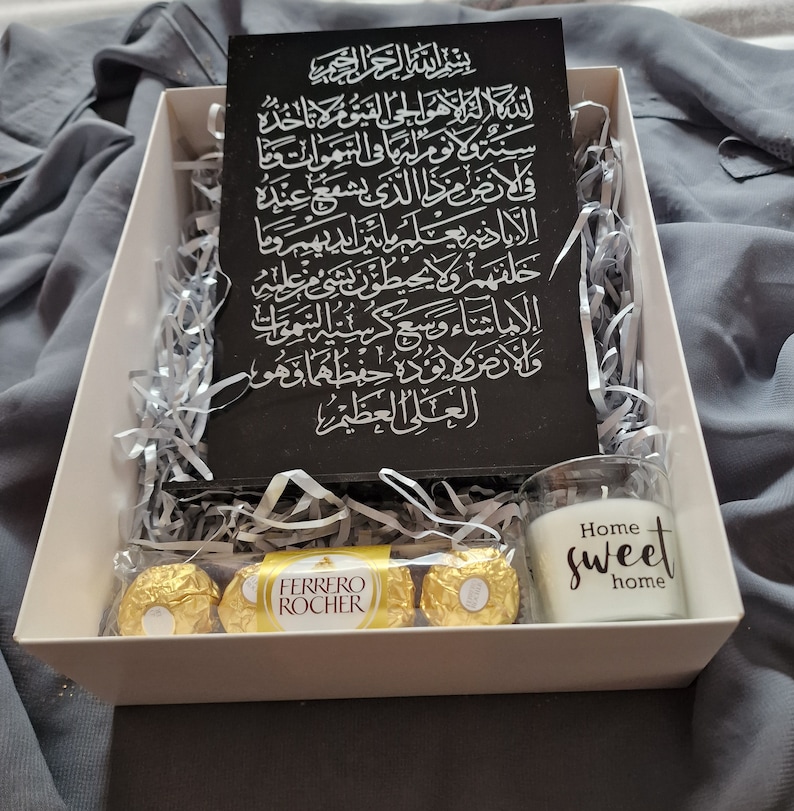 بسم الله الرحمن الرحيم
الله لا إله إلا هو الحي القيوم لا تأخذه
سنة ولا نوم له ما في السموات وما
في الأرض من ذا الذي يشفع عنده
إلا بإذنه يعلم ما بين أيديهم وما
خلفهم ولا يحيطون بشيء من علمه
إلا بما شاء وسع كرسيه السموات
والأرض ولا يؤده حفظهما وهو
العلي العظيم
FERRERO
ROCHER
Home
sweet
home